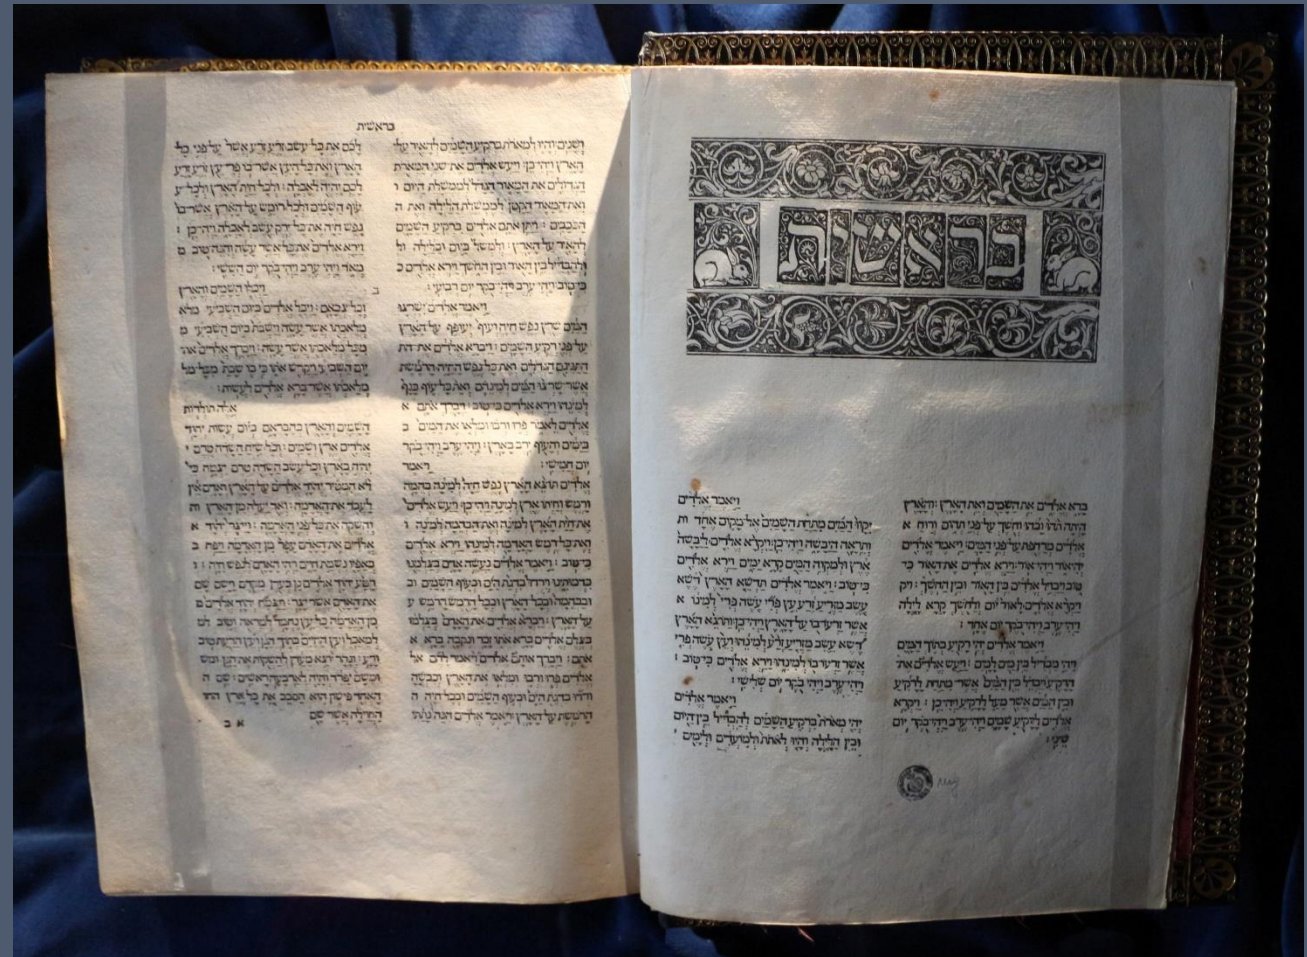 בראשית
ברא אלדים את השמים ואת הארץ : והארץ
היתה תהו ובהו וחשך על פני תהום ורוח א
אלדים מרחפת על פני המים : ויאמר אלדים
יהי אור ויהי אור : וירא אלדים את האור כי
טוב ויבדל אלדים בין האור ובין החשך : ויק
ויקרא אלדים לאור יום ולחשך קרא לילה
ויהי ערב ויהי בקר יום אחד :
ויאמר אלדים יהי רקיע בתוך המים
ויהי מבדיל בין מים למים : ויעש אלדים את
הרקיע ויבדל בין המים אשר מתחת לרקיע
ובין המים אשר מעל לרקיע ויהי כן : ויקרא
אלדים לרקיע שמים ויהי ערב ויהי בקר יום
שיני :
ויאמר אלדים
יקוו המים מתחת השמים אל מקום אחד ות
ותראה היבשה ויהי כן : ויקרא אלדים ליבשה
ארץ ולמקוה המים קרא ימים וירא אלדים
כי טוב : ויאמר אלדים תדשא הארץ דשא
עשב מזריע זרע עץ פרי עשה פרי למינו א
אשר זרעו בו על הארץ ויהי כן : ותוצא הארץ
דשא עשב מזריע זרע למינהו ועץ עשה פרי
אשר זרעו בו למינהו וירא אלדים כי טוב :
ויהי ערב ויהי בקר יום שלישי :
ויאמר אלדים
יהי מארת ברקיע השמים להבדיל בין היום
ובין הלילה והיו לאתת ולמועדים ולימים י
בראשית
ושנים והיו למאורת ברקיע השמים להאיר על
הארץ ויהי כן : ויעש אלדים את שני המארת
הגדולים את המאור הגדל לממשלת היום ו
ואת המאור הקטן לממשלת הלילה ואת ה
הככבים : ויתן אתם אלדים ברקיע השמים
להאיר על הארץ : ולמשל ביום ובלילה ול
ולהבדיל בין האור ובין החשך וירא אלדים כ
כי טוב ויהי ערב ויהי בקר יום רביעי :
ויאמר אלדים ישרצו
המים שרץ נפש חיה ועוף יעופף על הארץ
על פני רקיע השמים : ויברא אלדים את הת
התנינם הגדולים ואת כל נפש החיה הרמשת
אשר שרצו המים למינהם ואת כל עוף כנף
למינהו וירא אלדים כי טוב : ויברך אתם א
אלדים לאמר פרו ורבו ומלאו את המים ב
בימים והעוף ירב בארץ : ויהי ערב ויהי בקר
יום חמישי : ויאמר
אלדים תוצא הארץ נפש חיה למינה בהמה
ורמש וחיתו ארץ למינה ויהי כן : ויעש אלדים
את חית הארץ למינה ואת הבהמה למינה ו
ואת כל רמש האדמה למינהו וירא אלדים
כי טוב : ויאמר אלדים נעשה אדם בצלמנו
כדמותינו וירדו בדגת הים ובעוף השמים וב
ובבהמה ובכל הארץ ובכל הרמש הרמש ע
על הארץ : ויברא אלדים את האדם בצלמו
בצלם אלדים ברא אתו זכר ונקבה ברא א
אתם : ויברך אותם אלדים ויאמר להם אל
אלדים פרו ורבו ומלאו את הארץ וכבשה
ורדו בדגת הים ובעוף השמים ובכל חיה ה
הרמשת על הארץ : ויאמר אלדים הנה נתתי
לכם את כל עשב זרע זרע אשר על פני כל
הארץ ואת כל העץ אשר בו פרי עץ זרע זרע
לכם יהיה לאכלה : ולכל חית הארץ ולכל ע
עוף השמים ולכל רומש על הארץ אשר בו
נפש חיה את כל ירק עשב לאכלה ויהי כן :
וירא אלדים את כל אשר עשה והנה טוב מ
מאד ויהי ערב ויהי בקר יום הששי :
ב ויכלו השמים והארץ
וכל צבאם : ויכל אלדים ביום השביעי מלא
מלאכתו אשר עשה וישבת ביום השביעי מ
מכל מלאכתו אשר עשה : ויברך אלדים את
יום השביעי ויקדש אתו כי בו שבת מכל מל
מלאכתו אשר ברא אלדים לעשות :
אלה תולדות
השמים והארץ בהבראם ביום עשות יהוד
אלדים ארץ ושמים : וכל שיח השדה טרם י
יהיה בארץ וכל עשב השדה טרם יצמח כי
לא המטיר יהוד אלדים על הארץ ואדם אין
לעבד את האדמה : ואד יעלה מן הארץ וה
והשקה את כל פני האדמה : וייצר יהוד א
אלדים את האדם עפר מן האדמה ויפח ב
באפיו נשמת חיים ויהי האדם לנפש חיה : ו
ויטע יהוד אלדים גן בעדן מקדם וישם שם
את האדם אשר יצר : ויצמח יהוד אלדים מ
מן האדמה כל עץ נחמד למראה וטוב למ
למאכל ועץ החיים בתוך הגן ועץ הדעת טוב
ורע : ונהר יוצא מעדן להשקות את הגן ומש
ומשם יפרד והיה לארבעה ראשים : שם ה
האחד פישון הוא הסבב את כל ארץ החו
החוילה אשר שם
א ב